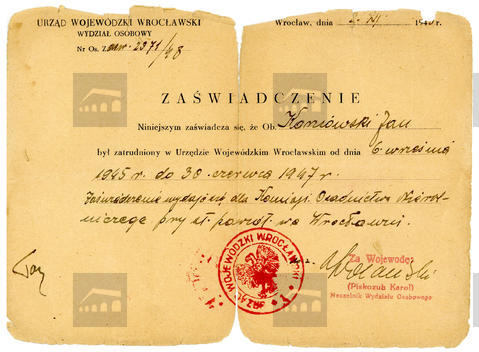 URZĄD WOJEWÓDZKI WROCŁAWSKI
WYDZIAŁ OSOBOWY
Wrocław, dnia 2. XI. 1948 r.
Nr Os. Zaśw. 2371/48
ZAŚWIADCZENIE
Niniejszym zaświadcza się, że Ob. Koniowski Jan
był zatrudniony w Urzędzie Wojewódzkim Wrocławskim od dnia 6 września
1945 r. do 30. czerwca 1947 r.
Zaświadczenie wydaje się dla Komisji Osadnictwa
przy we Wrocławiu.
Za Wojewodę
(Piskozub Karol)
Naczelnik Wydziału Osobowego
WOJEWÓDZKI WROCŁAWSKI